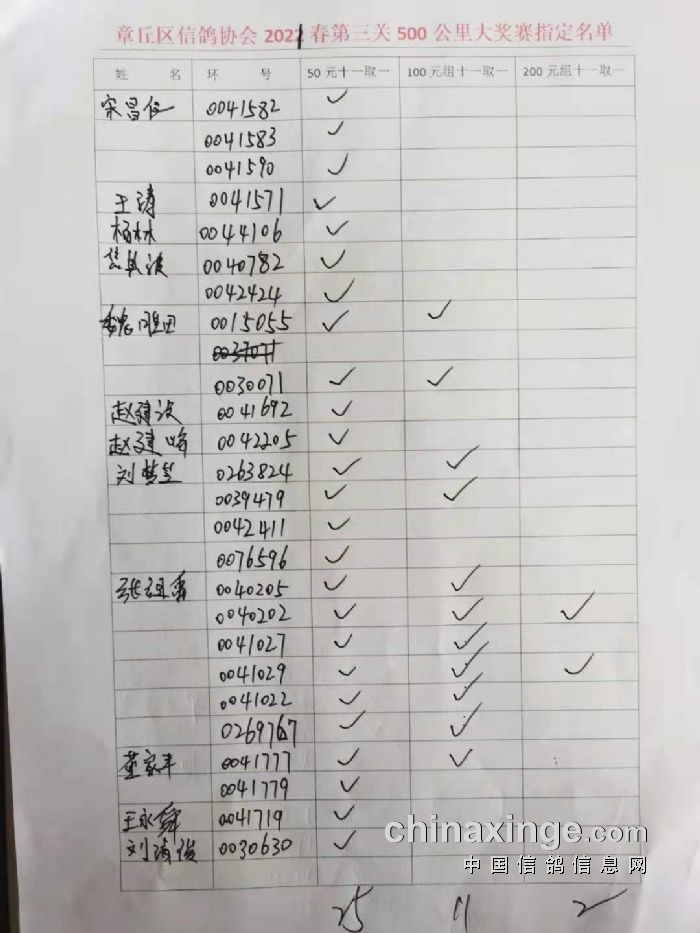 章丘区信鸽协会 2022 春第三关 500 公里大奖赛指定名单
姓 名 环 号 50 元十一取一 100 元组十一取一 200 元组十一取一
宋昌 0041582 ✓
0041583 ✓
0041590 ✓
王涛 0041571 ✓
杨林 0044106 ✓
0040782 ✓
0042424 ✓
0015055 ✓ ✓
0030071 ✓ ✓
赵建波 0041692 ✓
赵建峰 0042205 ✓
刘梦兰 0263824 ✓ ✓
0039479 ✓ ✓
0042411 ✓
0076596 ✓
张 0040205 ✓ ✓
0040202 ✓ ✓ ✓
0041027 ✓ ✓
0041029 ✓ ✓ ✓
0041022 ✓ ✓
0269767 ✓ ✓
董家丰 0041777 ✓ ✓
0041779 ✓
王永舜 0041719 ✓
刘清俊 0030630 ✓
chinaxinge.com
中国信鸽信息网
25 11 2